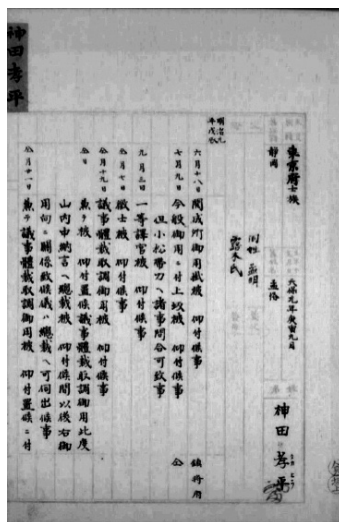 神田孝平
東京府士族
静岡
天保元年庚寅九月
孟恪
神田孝平
明治元年戊辰
六月十八日 開成所御用掛被 仰付候事 鎮将府
七月九日 今般御用ニ付上坂被 仰付候事 仝
但小松帯刀ヘ諸事問合可致事
九月三日 一等譯官被 仰付候事
仝月七日 徴士被 仰付候事
仝月十九日 議事體裁取調御用被 仰付候事
仝日 兼テ被 仰付置候議事體裁取調御用此度
山内中納言ヘ總裁被 仰付候間以後右御
用向ニ關係致候儀ハ總裁ヘ可伺出候事
仝月廿一日 兼テ議事體裁取調御用被 仰付置候ニ付